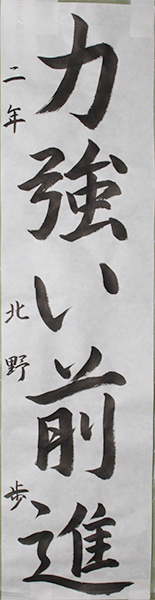 力強い前進
二年 北野歩